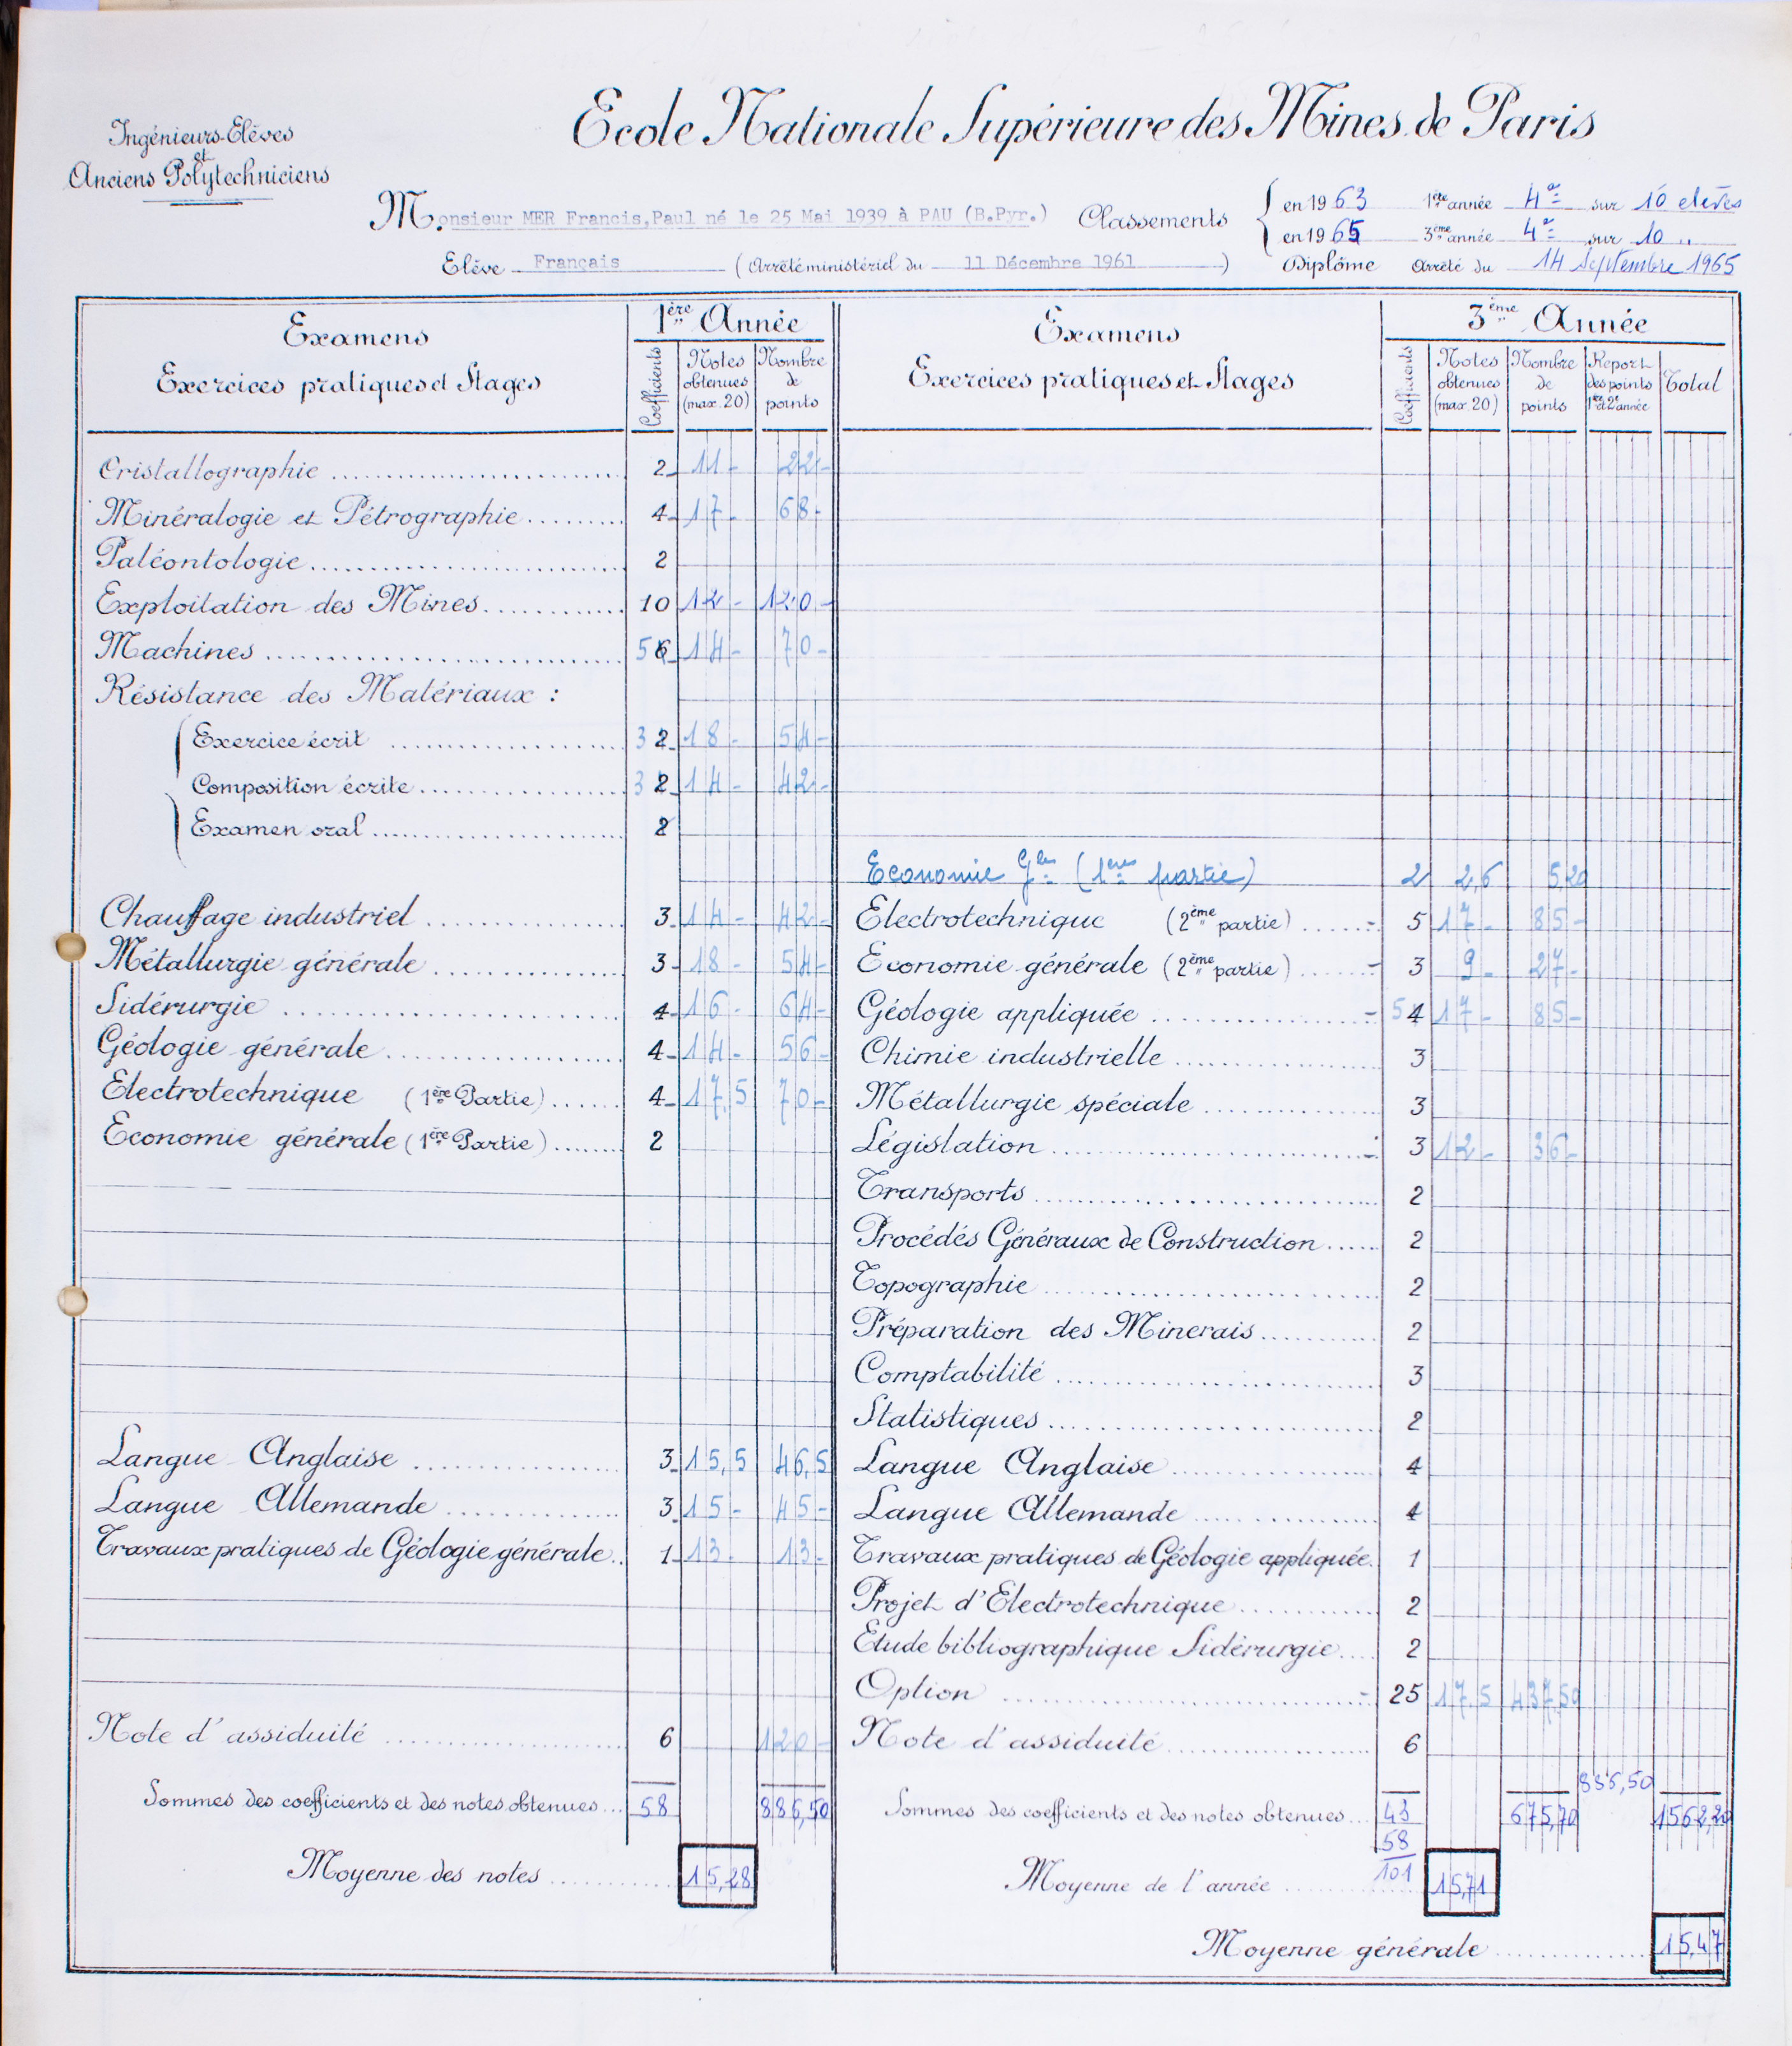 Ingénieurs-Elèves
et
Anciens Polytechniciens
Ecole Nationale Supérieure des Mines de Paris
Monsieur MER Francis, Paul né le 25 Mai 1939 à PAU (B.Pyr.)
Elève Français (Arrêté ministériel du 11 Décembre 1961)
Classements
en 1963 1ère année 4e sur 10 elèves
en 1965 3ème année 4e sur 10 "
Diplôme Arrêté du 14 Septembre 1965
Examens
Exercices pratiques et Stages
1ère Année
Coefficients
Notes obtenues (max. 20)
Nombre de points
Cristallographie 2 11 - 22 -
Minéralogie et Pétrographie 4 17 - 68 -
Paléontologie 2
Exploitation des Mines 10 12 - 120 -
Machines 5 6 14 - 70 -
Résistance des Matériaux :
Exercice écrit 3 2 18 - 54 -
Composition écrite 3 2 14 - 42 -
Examen oral 2
Chauffage industriel 3 14 - 42 -
Métallurgie générale 3 18 - 54 -
Sidérurgie 4 16 - 64 -
Géologie générale 4 14 - 56 -
Electrotechnique (1ère Partie) 4 17,5 70 -
Economie générale (1ère Partie) 2
Langue Anglaise 3 15,5 46,5
Langue Allemande 3 15 - 45 -
Travaux pratiques de Géologie générale 1 13 - 13 -
Note d'assiduité 6 120 -
Sommes des coefficients et des notes obtenues 58 886,50
Moyenne des notes 15,28
Examens
Exercices pratiques et Stages
3ème Année
Coefficients
Notes obtenues (max. 20)
Nombre de points
Report des points 1ère et 2e année
Total
Economie Gle (1ère partie) 2 2,6 5,20
Electrotechnique (2ème partie) 5 17 - 85 -
Economie générale (2ème partie) 3 9 - 27 -
Géologie appliquée 5 4 17 - 85 -
Chimie industrielle 3
Métallurgie spéciale 3
Législation 3 12 - 36 -
Transports 2
Procédés Généraux de Construction 2
Topographie 2
Préparation des Minerais 2
Comptabilité 3
Statistiques 2
Langue Anglaise 4
Langue Allemande 4
Travaux pratiques de Géologie appliquée 1
Projet d'Electrotechnique 2
Etude bibliographique Sidérurgie 2
Option 25 17,5 437,50
Note d'assiduité 6
886,50
Sommes des coefficients et des notes obtenues 43 675,70 1562,20
58
101
Moyenne de l'année 15,71
Moyenne générale 15,47